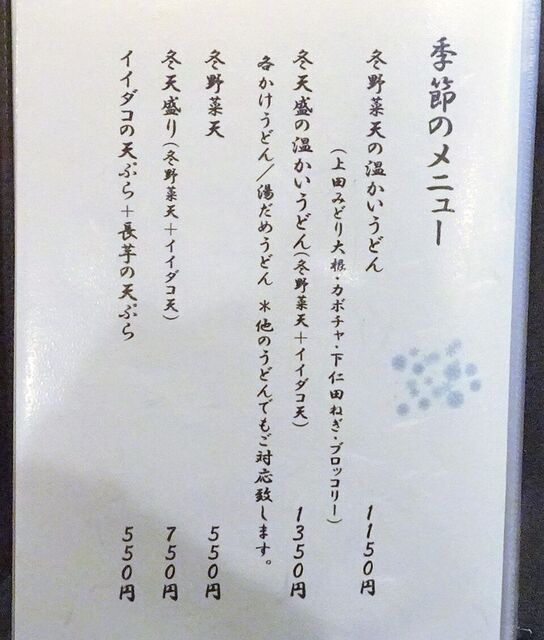 季節のメニュー
冬野菜天の温かいうどん 1150円
(上田みどり大根・カボチャ・下仁田ねぎ・ブロッコリー)
冬天盛の温かいうどん(冬野菜天+イイダコ天) 1350円
各かけうどん/湯だめうどん *他のうどんでもご対応致します。
冬野菜天 550円
冬天盛り(冬野菜天+イイダコ天) 750円
イイダコの天ぷら+長芋の天ぷら 550円